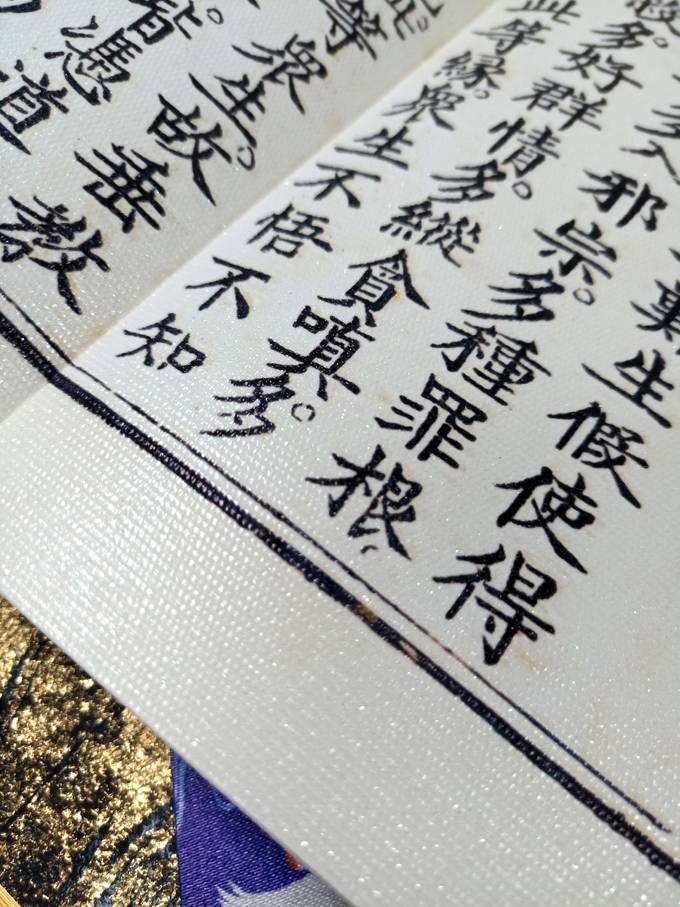 冀生假使得
多入邪宗。多種罪根
殺。多好群情。多縱貪嗔。多
此等緣。眾生不悟不知
此等眾生。故垂教
皆憑道